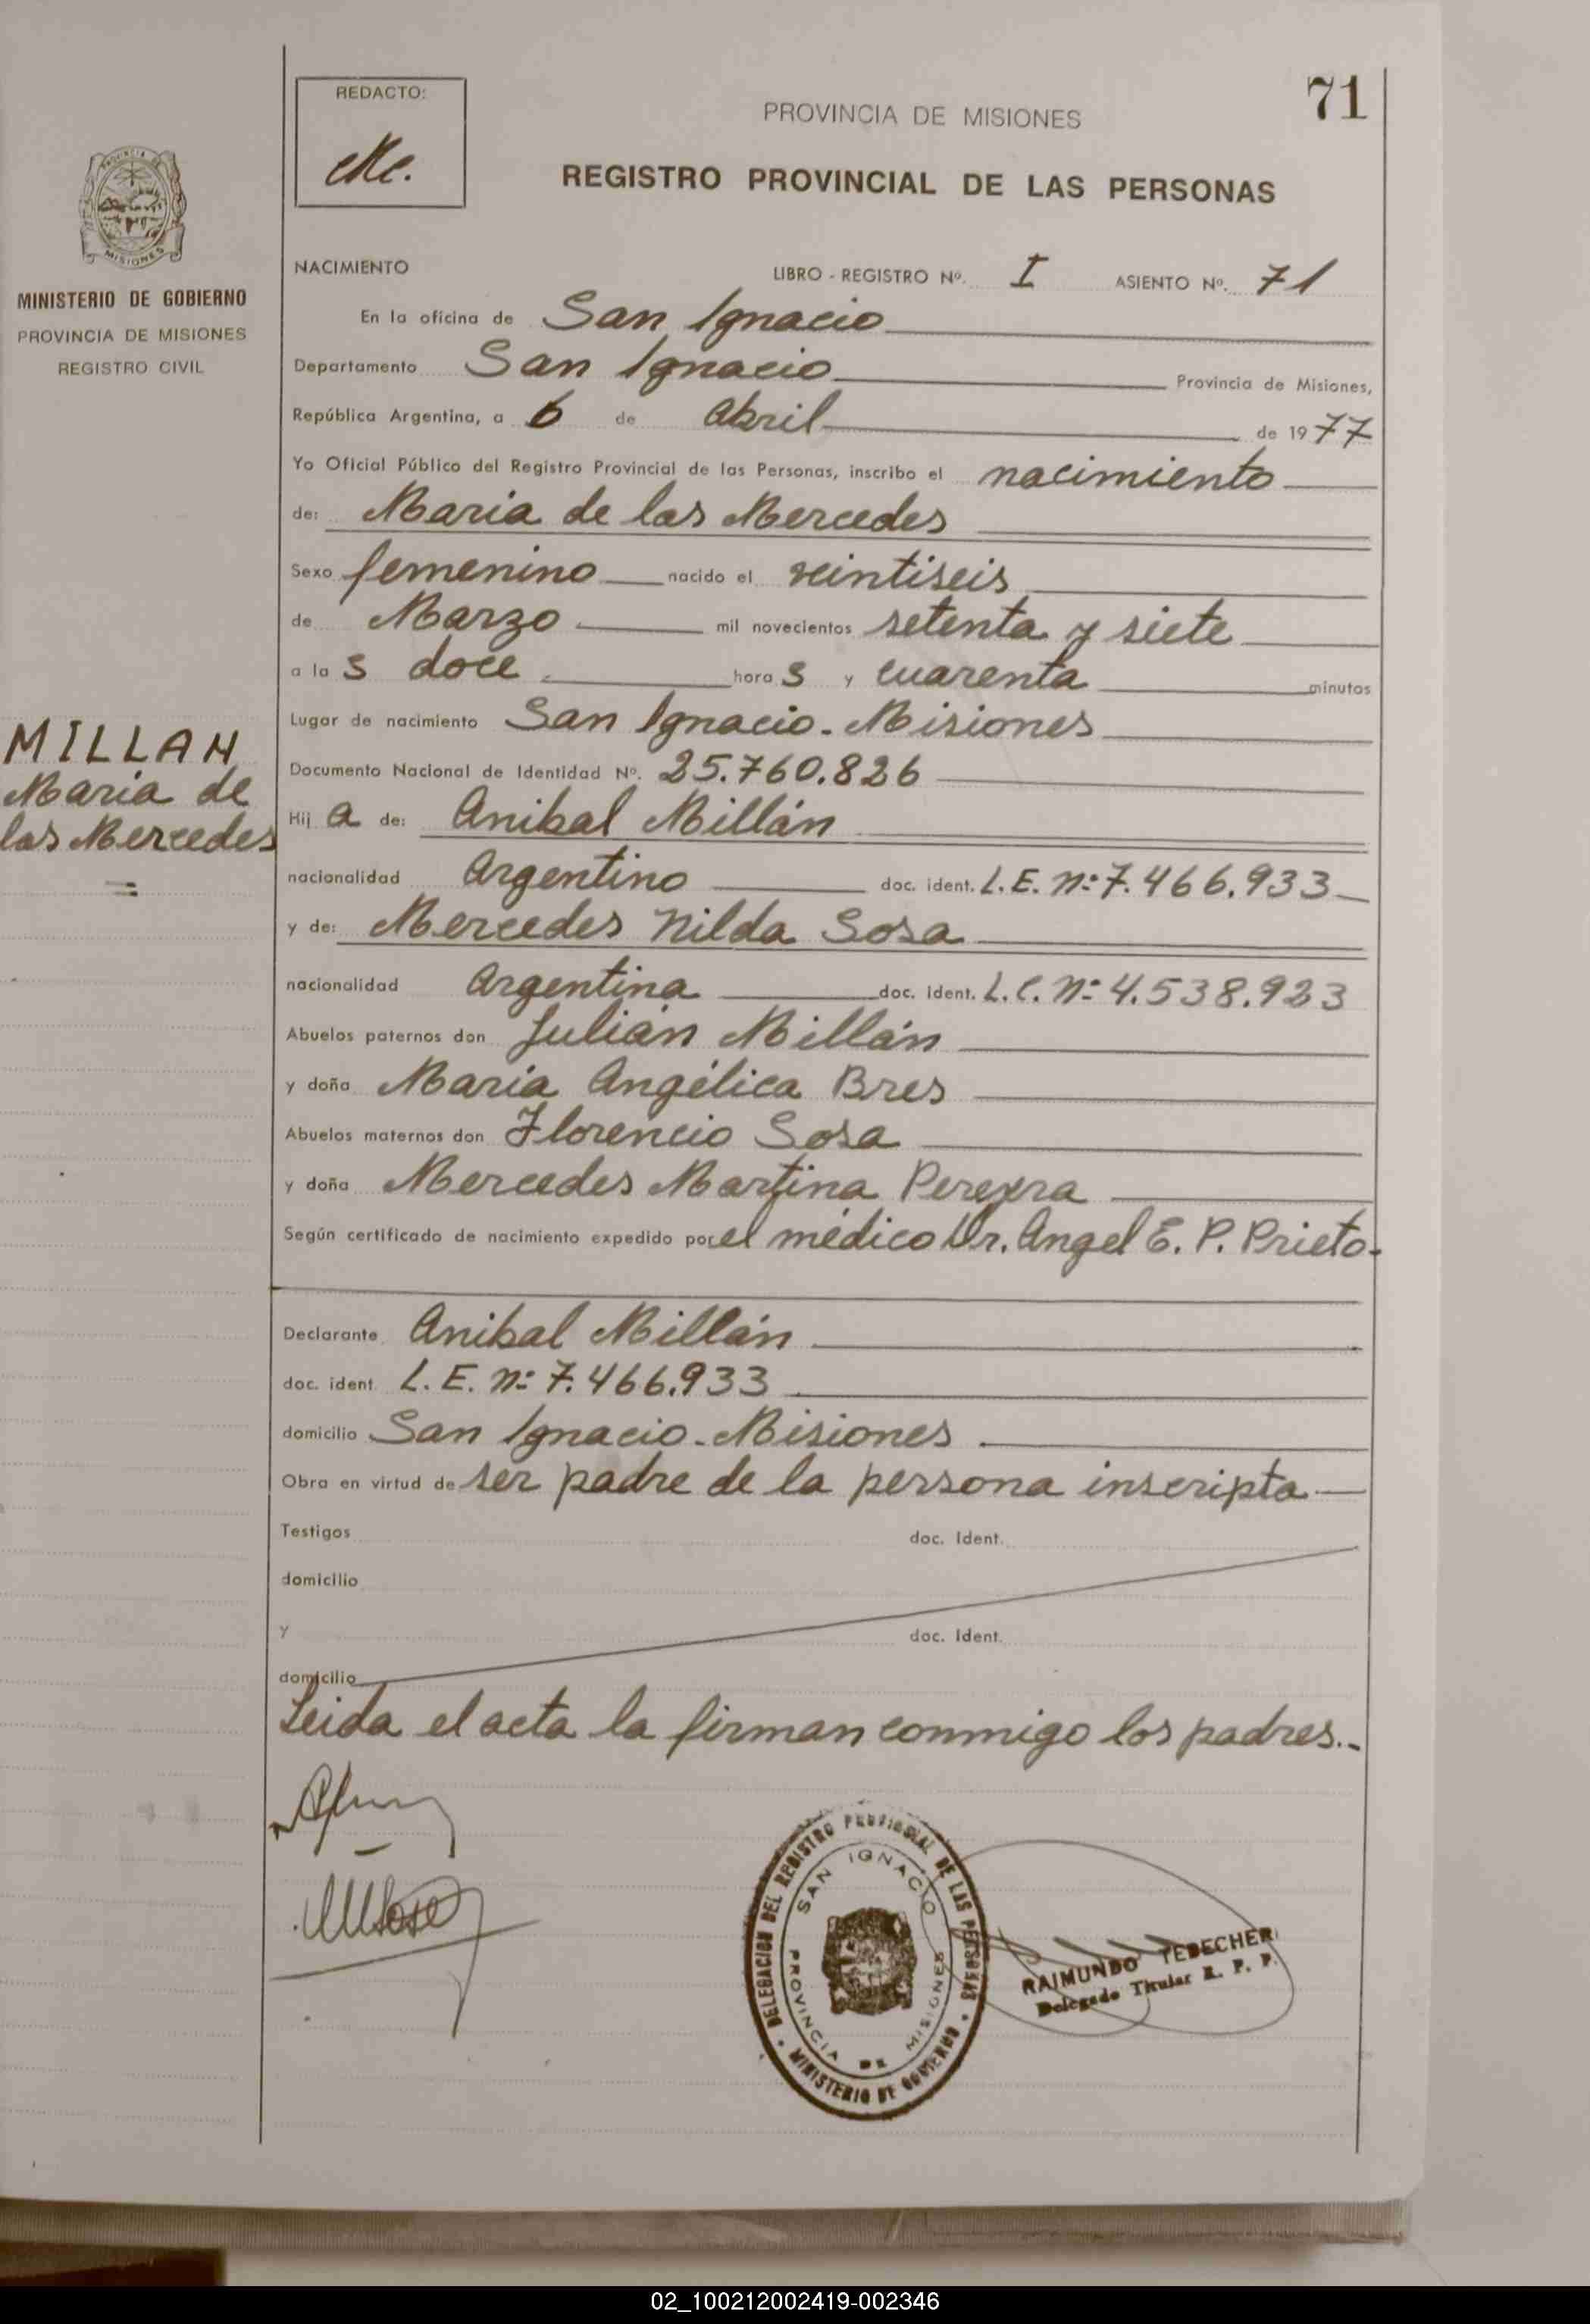 REDACTO:
PROVINCIA DE MISIONES
71
REGISTRO PROVINCIAL DE LAS PERSONAS
PROVINCIA DE
MISIONES
MINISTERIO DE GOBIERNO
PROVINCIA DE MISIONES
REGISTRO CIVIL
MILLAN
Maria de
las Mercedes
=
NACIMIENTO LIBRO - REGISTRO Nº. I ASIENTO Nº. 71
En la oficina de San Ignacio
Departamento San Ignacio Provincia de Misiones,
República Argentina, a 6 de Abril de 1977
Yo Oficial Público del Registro Provincial de las Personas, inscribo el nacimiento
de: Maria de las Mercedes
Sexo femenino nacido el veintiseis
de Marzo mil novecientos setenta y siete
a las doce horas y cuarenta minutos
Lugar de nacimiento San Ignacio - Misiones
Documento Nacional de Identidad Nº. 25.760.826
Hija de: Anibal Millán
nacionalidad Argentino doc. ident. L.E. nº 7.466.933
y de: Mercedes Nilda Sosa
nacionalidad Argentina doc. ident. L.C. Nº 4.538.923
Abuelos paternos don Julián Millán
y doña María Angélica Bres
Abuelos maternos don Florencio Sosa
y doña Mercedes Martina Pereyra
Según certificado de nacimiento expedido por el médico Dr. Angel E. P. Prieto.
Declarante Anibal Millán
doc. ident. L.E. nº 7.466.933
domicilio San Ignacio - Misiones
Obra en virtud de ser padre de la persona inscripta
Testigos doc. Ident.
domicilio
y doc. Ident.
domicilio
Leida el acta la firman conmigo los padres.-
DELEGACION DEL REGISTRO PROVINCIAL DE LAS PERSONAS
MINISTERIO DE GOBIERNO
SAN IGNACIO
PROVINCIA DE MISIONES
RAIMUNDO TEDECHER
Delegado Titular R. P. P.
02_100212002419-002346